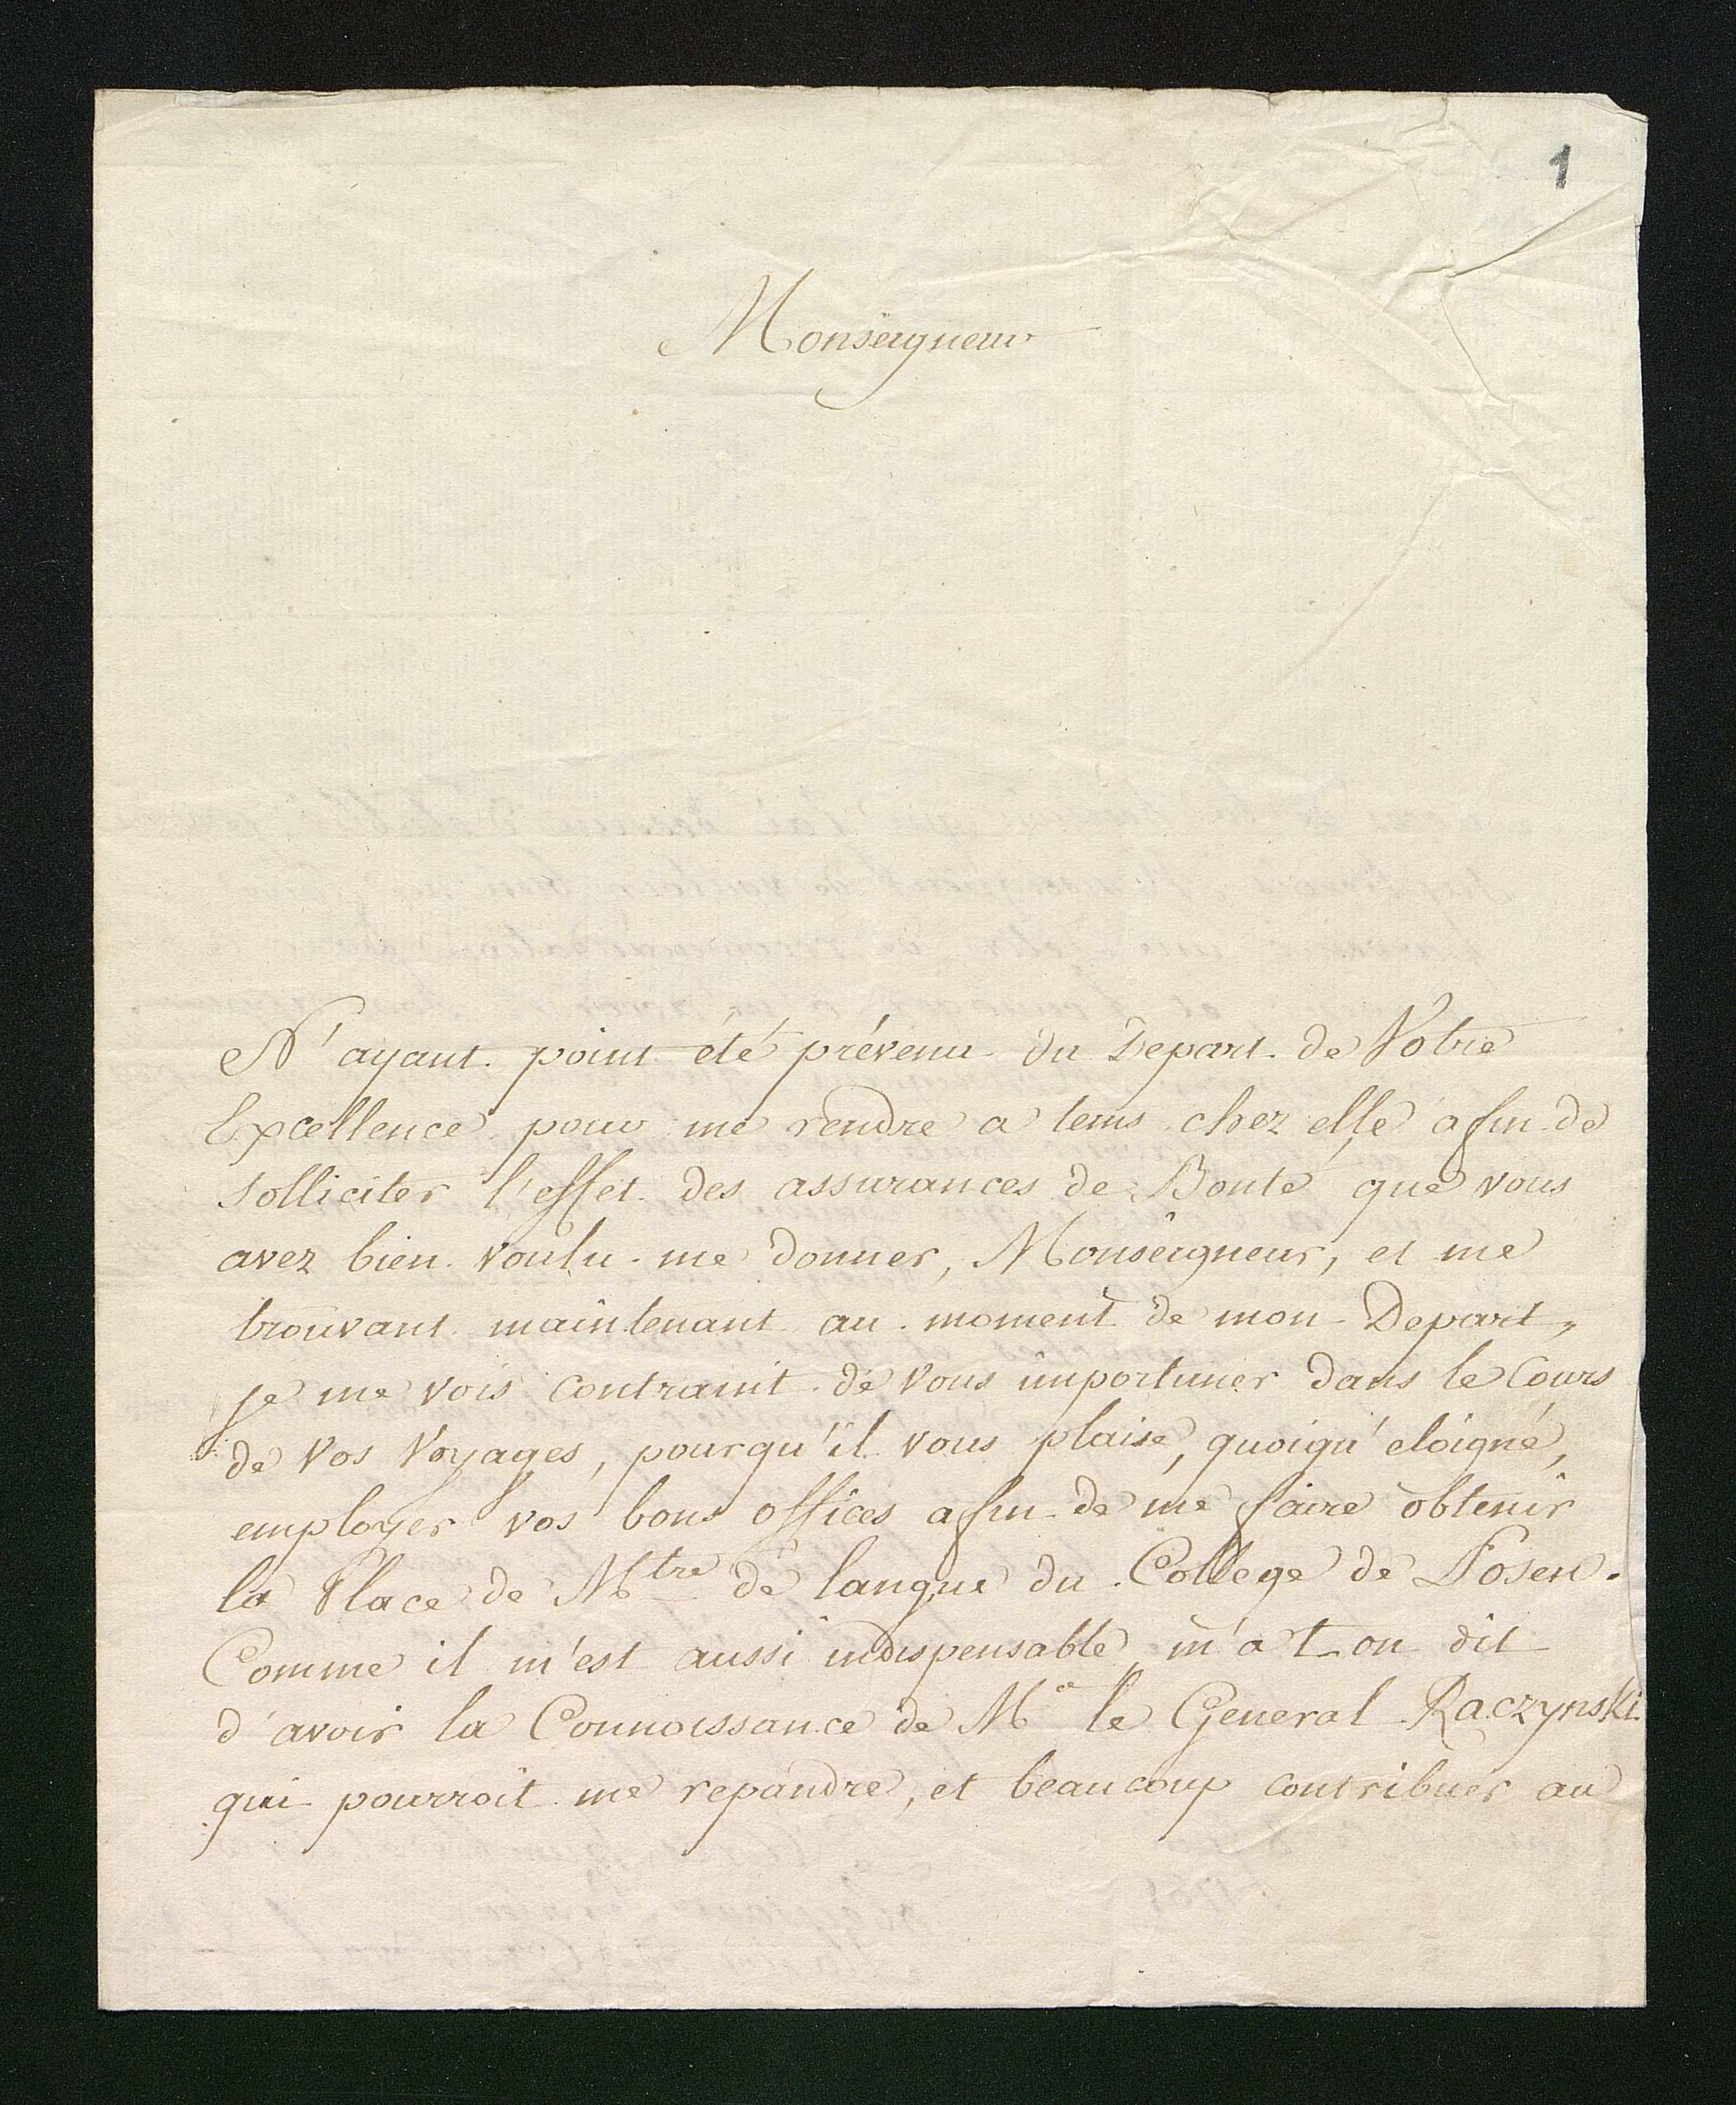 1
Monseigneur
N'ayant point été prévenu du Depart de Votre
Excellence pour me rendre a tems chez elle afin de
solliciter l'effet des assurances de Bonté que vous
avez bien voulu me donner, Monseigneur, et me
trouvant maintenant au moment de mon Depart,
je me vois contraint de vous importuner dans le Cours
de vos Voyages, pourqu'il vous plaise, quoiqu'eloigné,
employer vos bons offices afin de me faire obtenir
la Place de Mtre de langue du College de Posen.
Comme il m'est aussi indispensable m'a t on dit
d'avoir la Connoissance de Mr le General Raczynski
qui pourroit me repandre, et beaucoup contribuer au